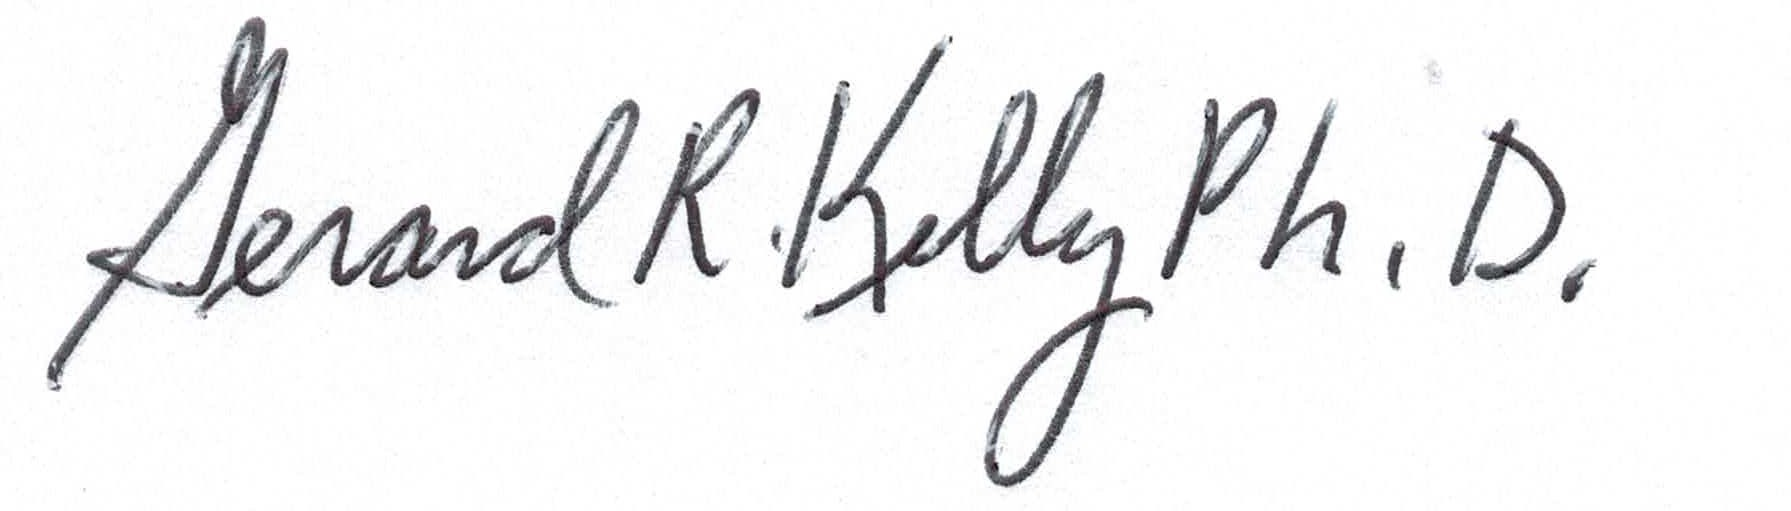 Gerard R. Kelly Ph.D.